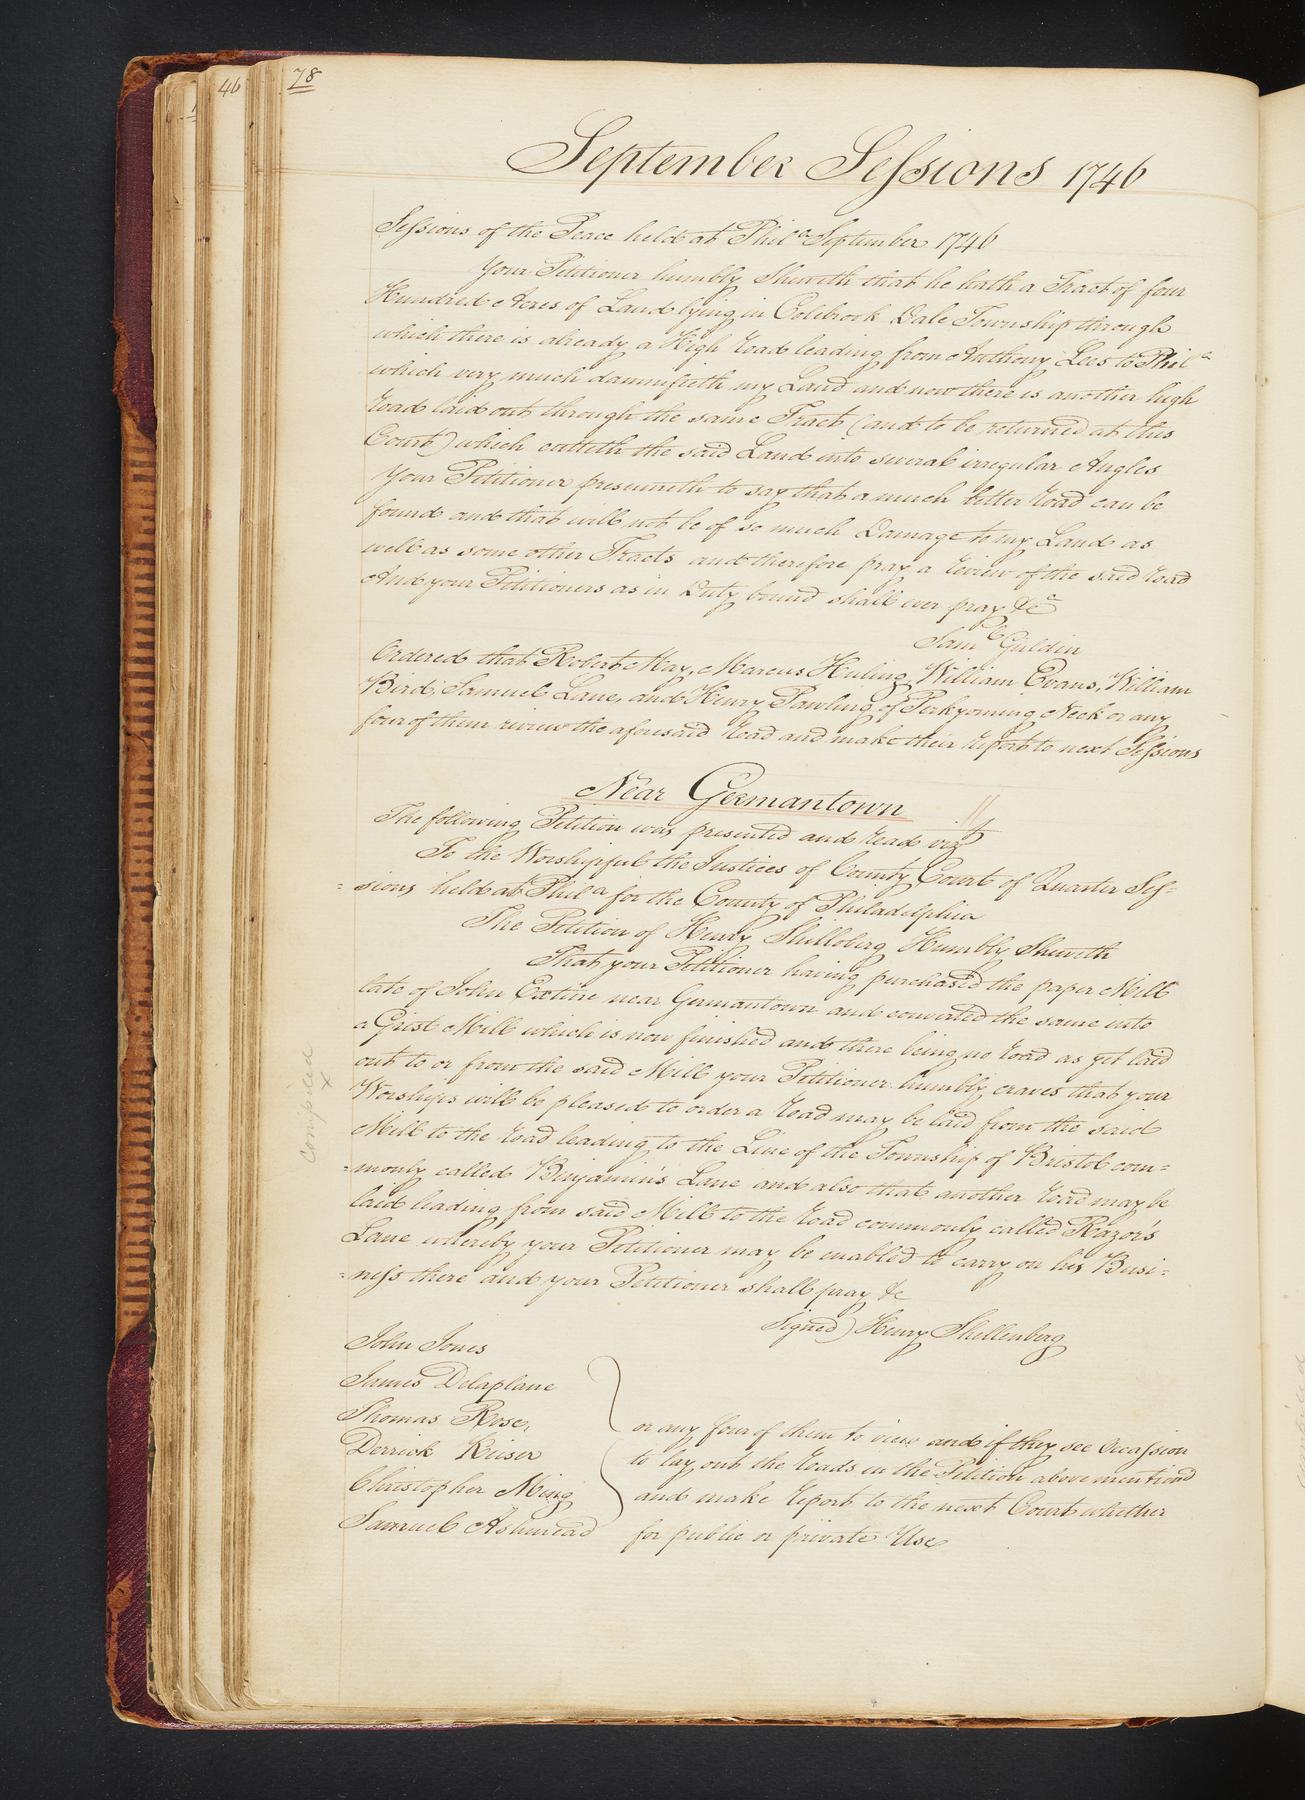 46
78
September Sessions 1746
Sessions of the Peace held at Phila September 1746
Your Petitioner humbly Sheweth that he hath a Tract of four
Hundred Acres of Land lying in Colebrook Dale Township through
which there is already a High road leading from Anthony Lees to Phila
which very much damnifieth my Land and now there is another high
road laid out through the same Tract (and to be returned at this
Court) which cutteth the said Land into several irregular Angles
Your Petitioner presumeth to say that a much better road can be
found and that will not be of so much Damage to my Land as
well as some other Tracts and therefore pray a review of the said road
And your Petitioners as in Duty bound shall ever pray &ca
Saml Guldin
Ordered that Robert May, Marcus Huling, William Evans, William
Bird, Samuel Lane, and Henry Pawling of Perkyoming Neck or any
four of them review the aforesaid road and make their report to next Sessions
Near Germantown
The following Petition was presented and read viz
To the Worshipful the Justices of County Court of Quarter Ses=
=sions held at Phila for the County of Philadelphia
The Petition of Henry Shilloberg Humbly Sheweth
That your Petitioner having purchased the paper Mill
late of John Gorgas near Germantown and converted the same into
a Grist Mill which is now finished and there being no road as yet laid
out to or from the said Mill your Petitioner humbly craves that your
Worships will be pleased to order a road may be laid from the said
Mill to the road leading to the Line of the Township of Bristol com=
=monly called Benjamin's Lane and also that another road may be
laid leading from said Mill to the road commonly called Razor's
Lane whereby your Petitioner may be enabled to carry on his Busi=
=ness there and your Petitioner shall pray &c
Signed) Henry Shellenberg
John Jones
James Delaplane
Thomas Rose,
Derrick Keiser
Christopher Ming
Samuel Ashmead
or any four of them to view and if they see Occassion
to lay out the roads in the Petition above mentiond
and make report to the next Court whether
for public or private Use
Compiled
x